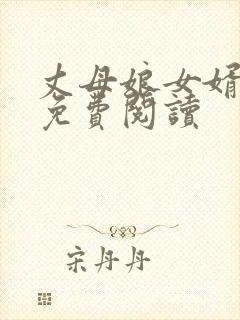 丈母娘女婿
免費閱讀
宋丹丹